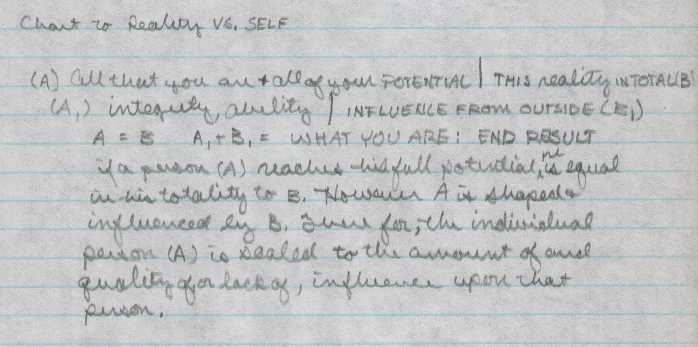 Chart to Reality VS. SELF
(A) All that you are + all of your POTENTIAL | THIS reality IN TOTAL (B)
(A,) integrity, ability | INFLUENCE FROM OUTSIDE (B,)
A = B A, + B, = WHAT YOU ARE: END RESULT
if a person (A) reaches his full potential, he is equal
in his totality to B. However A is shaped &
influenced by B. There for, the individual
person (A) is sealed to the amount of and
quality of, or lack of, influence upon that
person.